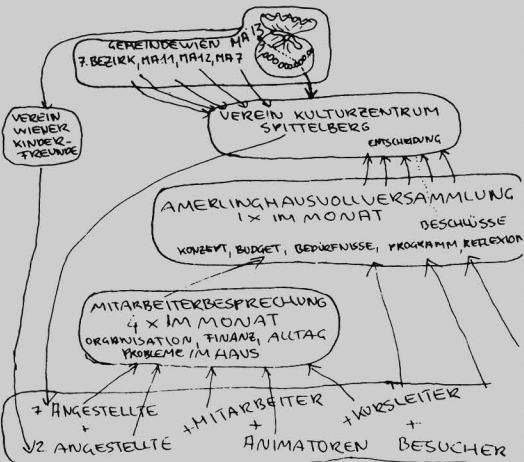 GEMEINDE WIEN MA 13
7. BEZIRK, MA 11, MA 12, MA 7
VEREIN
WIENER
KINDER-
FREUNDE
VEREIN KULTURZENTRUM
SPITTELBERG
ENTSCHEIDUNG
AMERLINGHAUSVOLLVERSAMMLUNG
1 X IM MONAT
BESCHLÜSSE
KONZEPT, BUDGET, BEDÜRFNISSE, PROGRAMM, REFLEXION
MITARBEITERBESPRECHUNG
4 X IM MONAT
ORGANISATION, FINANZ, ALLTAG
PROBLEME IM HAUS
7 ANGESTELLTE + MITARBEITER + KURSLEITER
+ + +
2 ANGESTELLTE ANIMATOREN BESUCHER